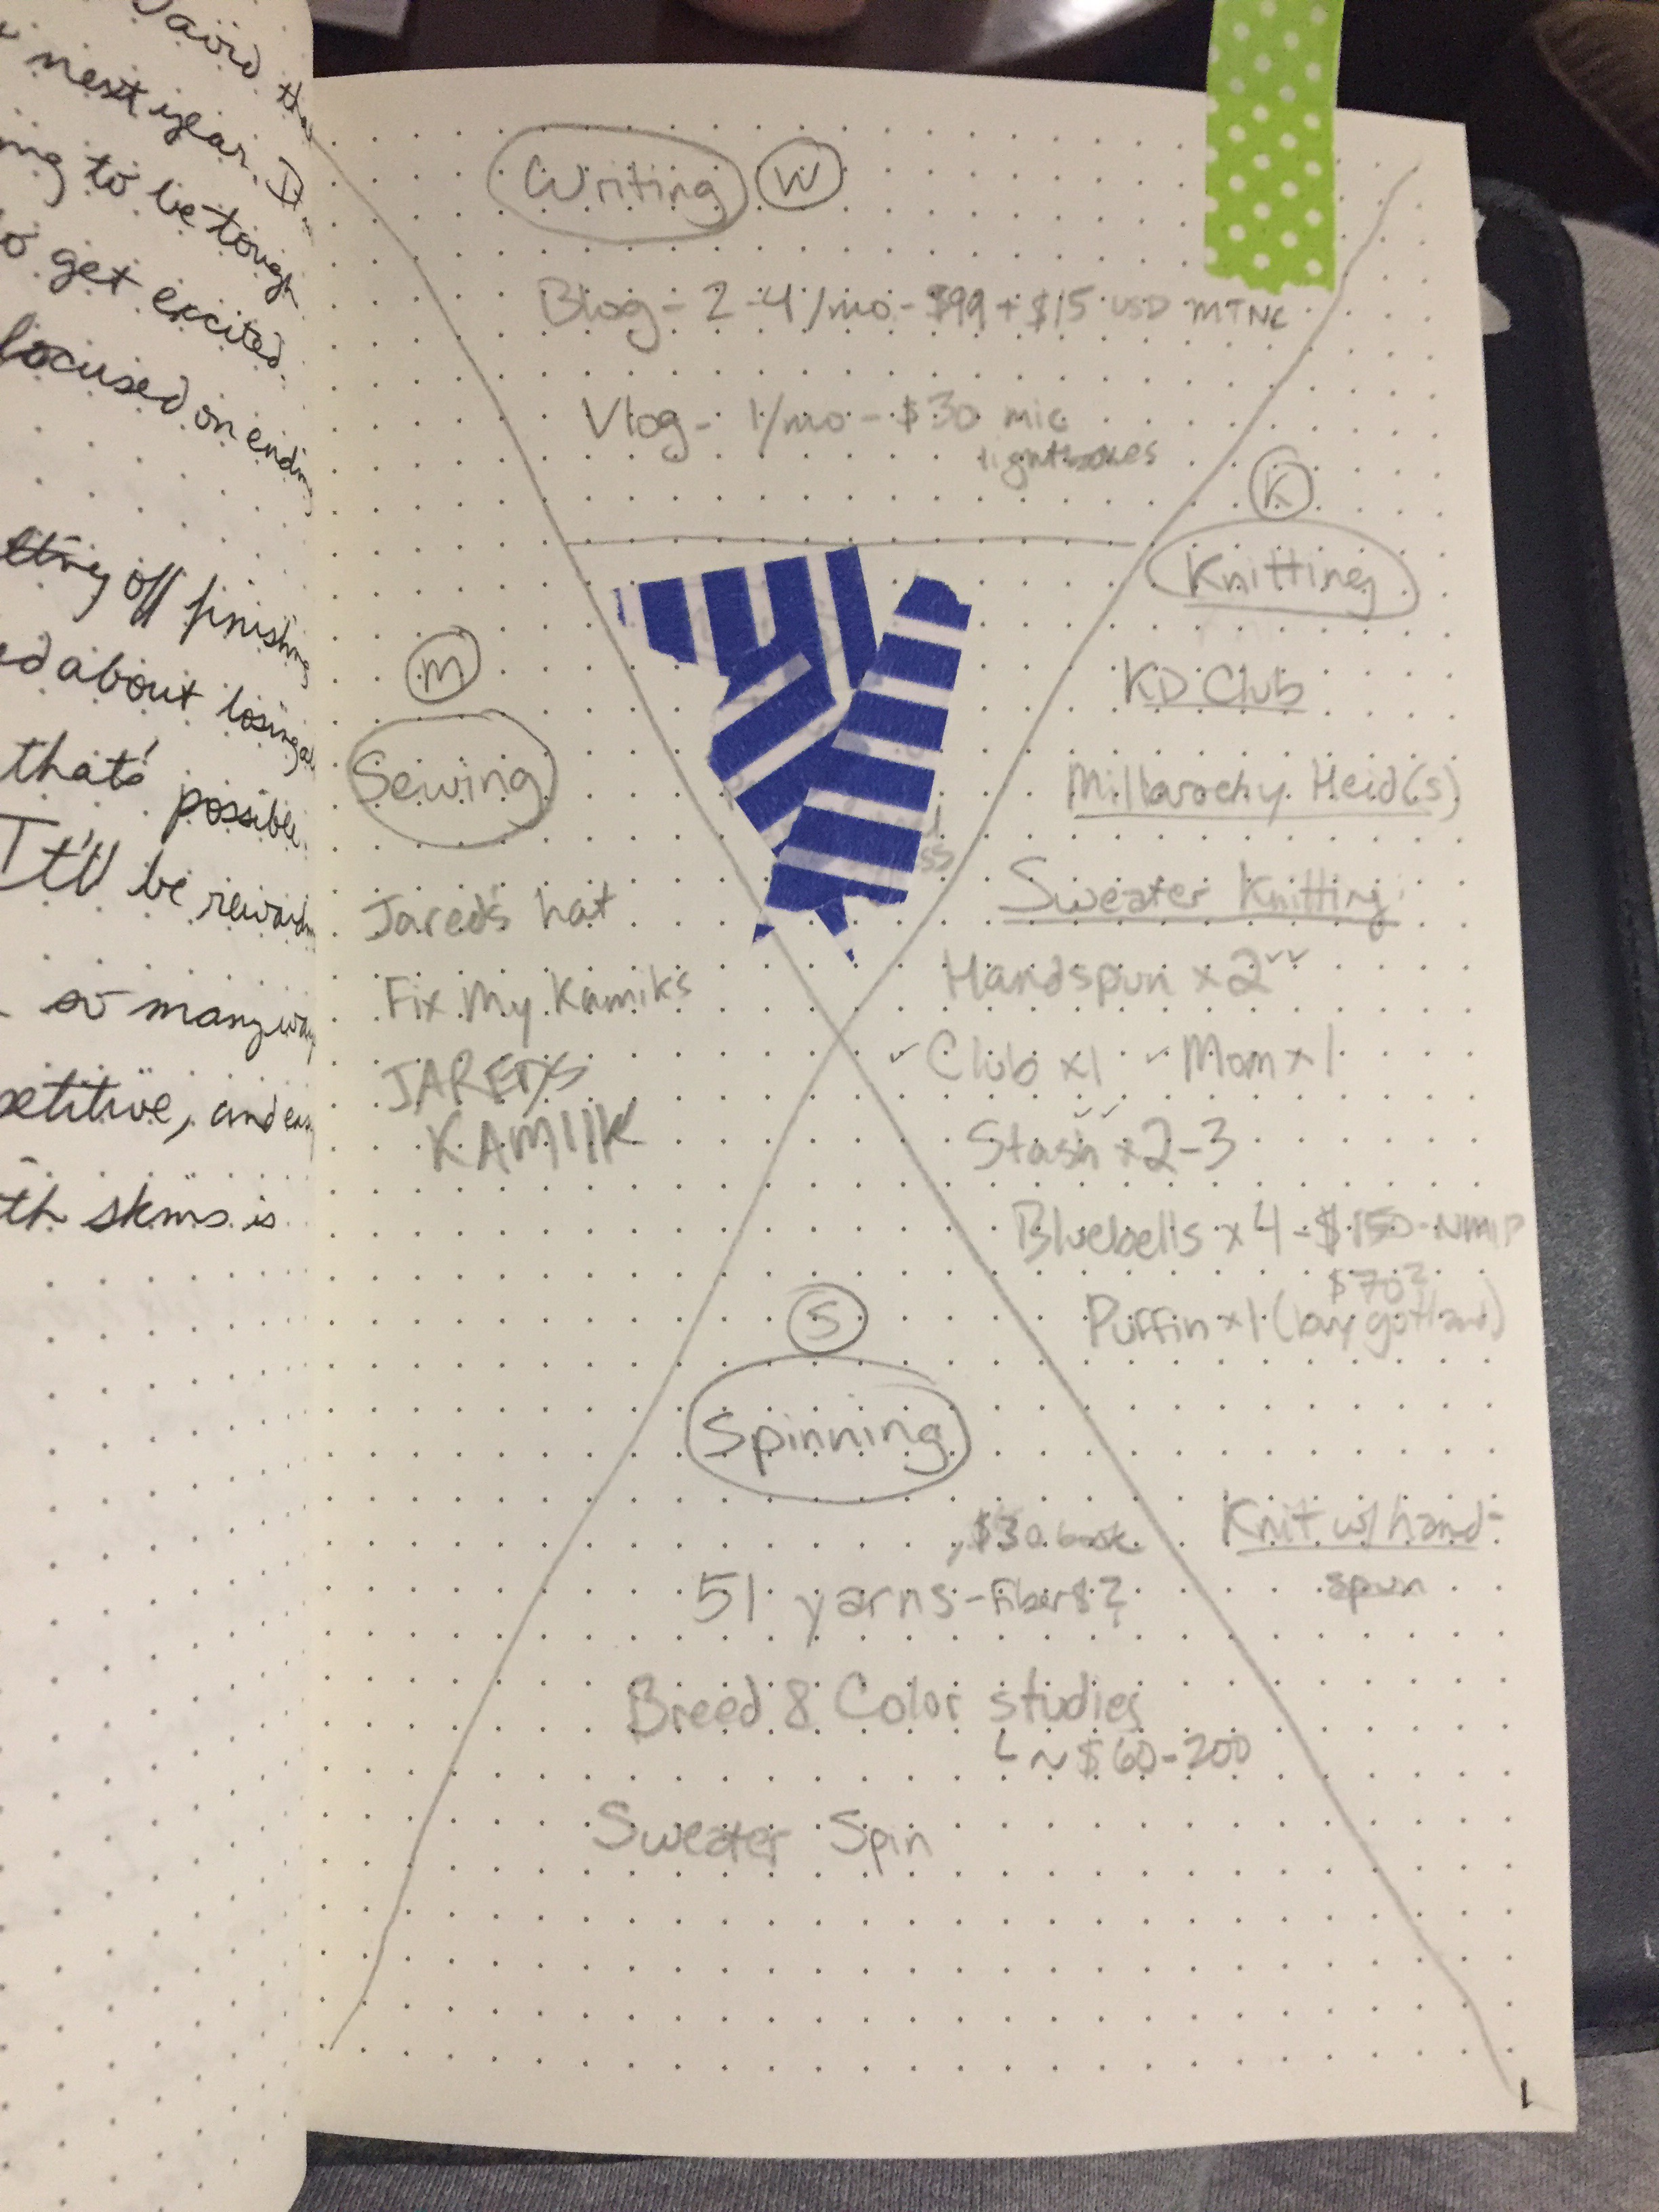 David the
next year. It
ing to be tough
to get excited.
focused on ending
off finishing
ed about losing
that's possible.
It'll be
so many way
petitive, and
th skms is
Writing W
Blog - 2-4/mo - $99 + $15 USD MTNC
Vlog - 1/mo - $30 mic
lightboxes
K
Knitting
KD Club
Millarochy Heid(s)
Sweater Knitting
Handspun x2
Club x1 Mom x1
Stash x2-3
Bluebells x4 - $150 - NMIP
$70?
Puffin x1 (buy gotland)
M
Sewing
Jared's hat
Fix My Kamiks
JAREDS
KAMIIK
S
Spinning
$30 book
51 yarns - Fibers?
Breed & Color studies
~$60-200
Sweater Spin
Knit w/ hand-
spun
1